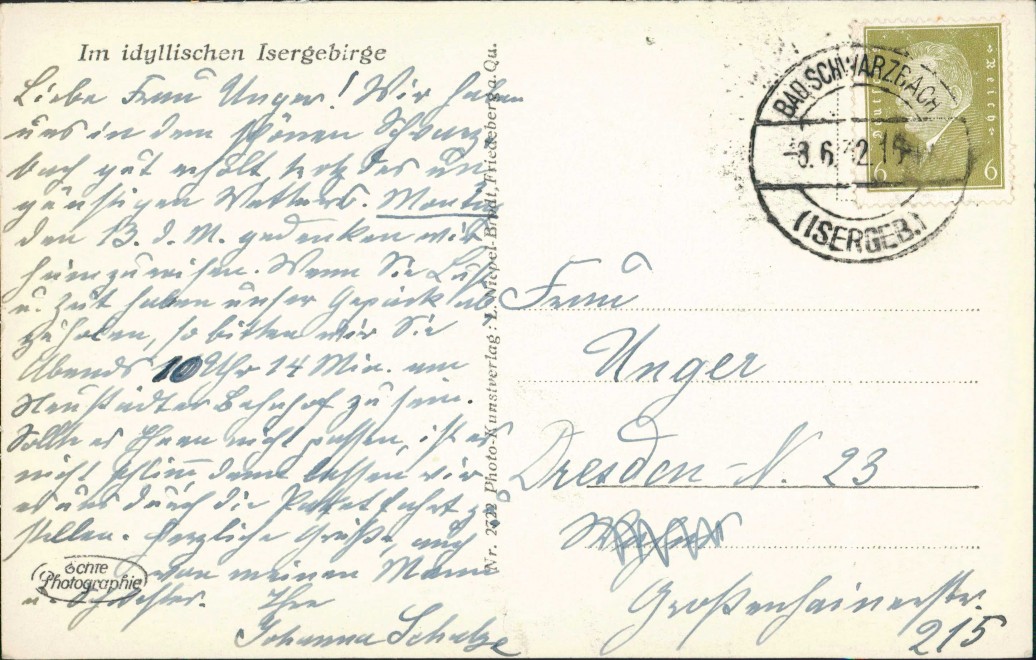 Im idyllischen Isergebirge
Liebe Frau Unger! Wir haben
uns in dem schönen Schwarz
bach gut erholt, trotz des un
günstigen Wetters. Montag
den 13. d. M. gedenken wir
heimzureisen. Wenn Sie Lust
u. Zeit haben unser Gepäck ab
zuholen, so bitten wir Sie
Abends 10 Uhr 14 Min. am
Neustädter Bahnhof zu sein.
Sollte es Ihnen nicht passen, ist es
nicht schlimm, dann lassen wir
es uns durch die Paketfahrt zu
stellen. Herzliche Grüße, auch
von meinem Mann
u. Schwester. Ihre
Johanna Schulze
Echte
Photographie
Nr. 2722 Photo-Kunstverlag: L. Niepel-Brodt, Friedeberg a. Qu.
BAD SCHWARZBACH
-8.6.32.15
(ISERGEB.)
Deutsches Reich
6 6
Frau
Unger
Dresden-N. 23
Großenhainerstr.
215